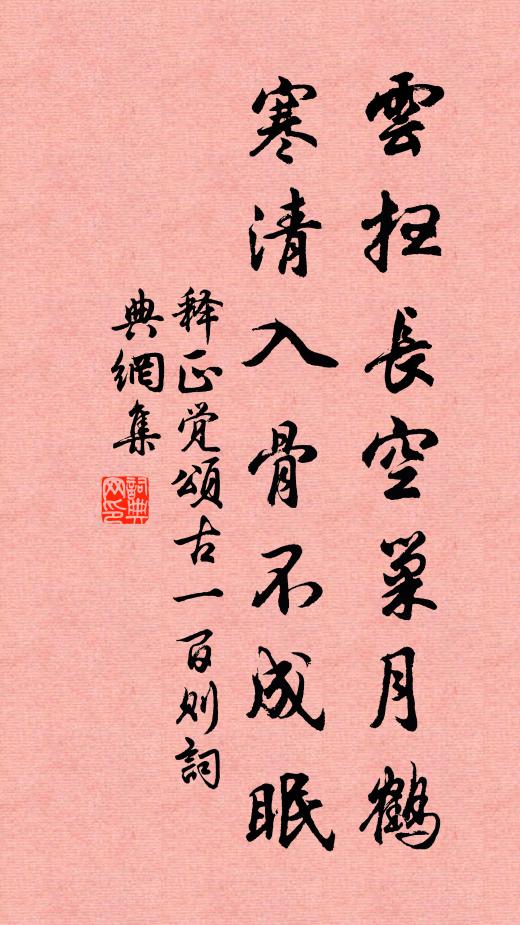 雲扫長空巢月鶴
寒清入骨不成眠
释正觉頌古一百则詞
典網集
詞典网印